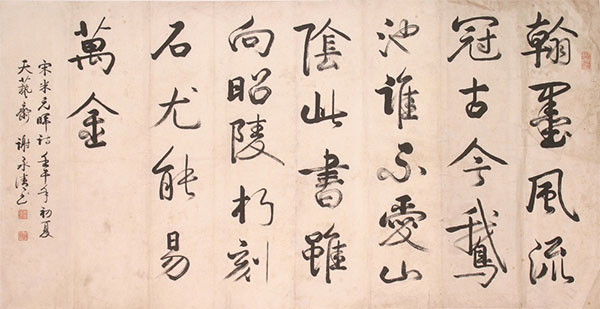 翰墨風流
冠古今鵝
池誰不愛山
陰此書雖
向昭陵朽刻
石尤能易
萬金
宋米元暉詩 壬午年初夏
天藝齋 謝承清書